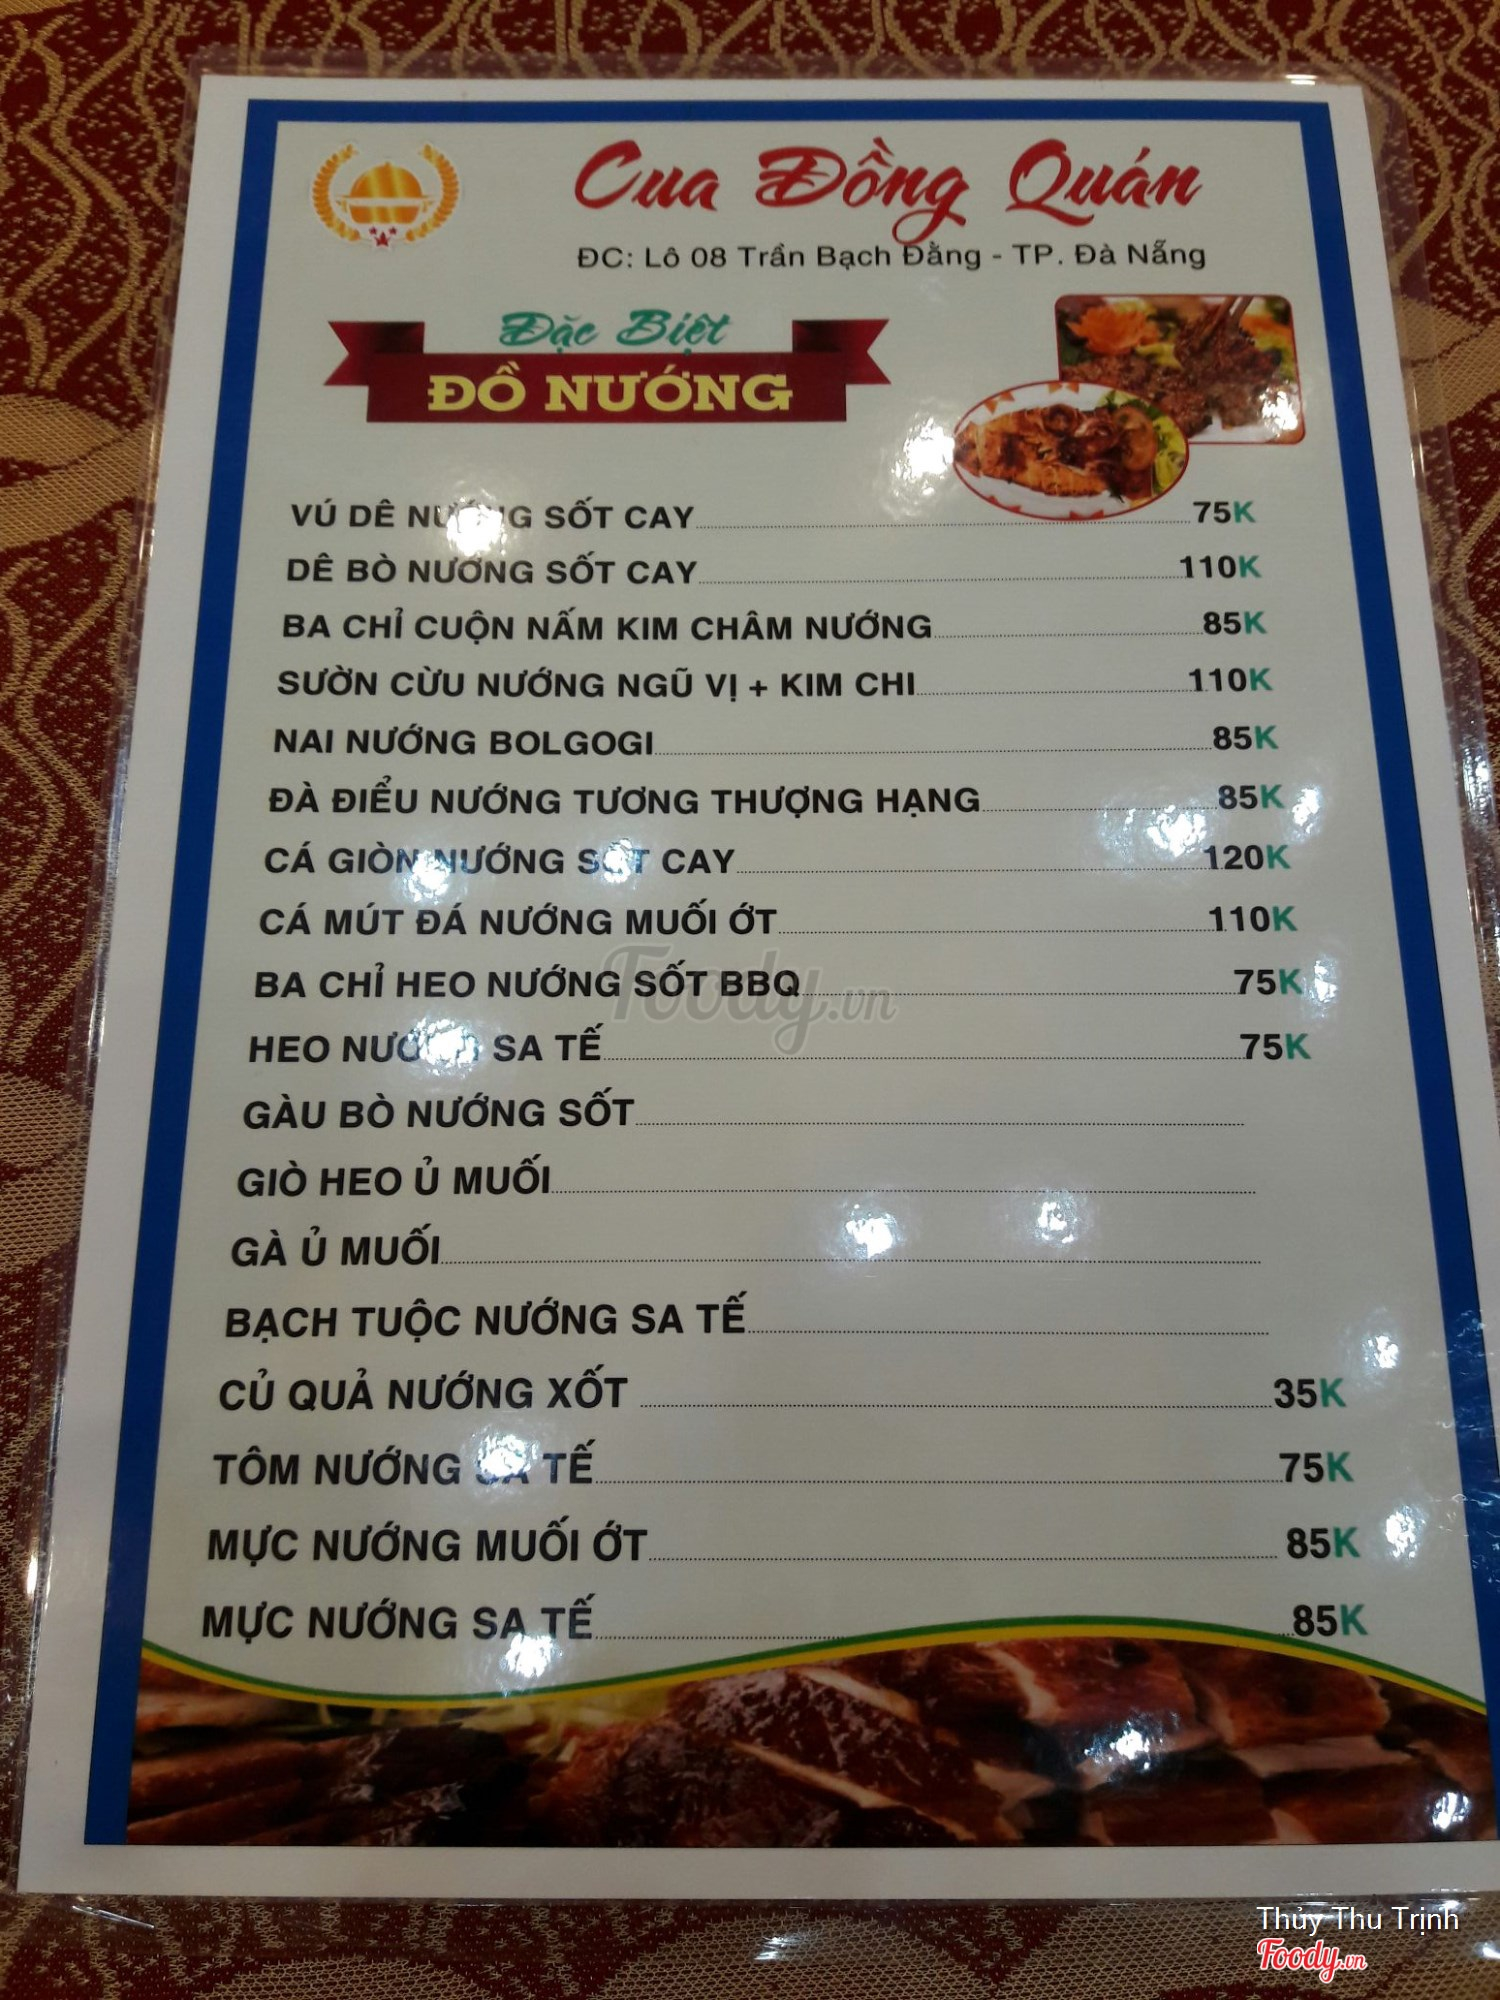 Cua Đồng Quán
ĐC: Lô 08 Trần Bạch Đằng - TP. Đà Nẵng
Đặc Biệt
ĐỒ NƯỚNG
VÚ DÊ NƯỚNG SỐT CAY 75K
DÊ BÒ NƯỚNG SỐT CAY 110K
BA CHỈ CUỘN NẤM KIM CHÂM NƯỚNG 85K
SƯỜN CỪU NƯỚNG NGŨ VỊ + KIM CHI 110K
NAI NƯỚNG BOLGOGI 85K
ĐÀ ĐIỂU NƯỚNG TƯƠNG THƯỢNG HẠNG 85K
CÁ GIÒN NƯỚNG SỐT CAY 120K
CÁ MÚT ĐÁ NƯỚNG MUỐI ỚT 110K
BA CHỈ HEO NƯỚNG SỐT BBQ 75K
Foody.vn
HEO NƯỚNG SA TẾ 75K
GÀU BÒ NƯỚNG SỐT
GIÒ HEO Ủ MUỐI
GÀ Ủ MUỐI
BẠCH TUỘC NƯỚNG SA TẾ
CỦ QUẢ NƯỚNG XỐT 35K
TÔM NƯỚNG SA TẾ 75K
MỰC NƯỚNG MUỐI ỚT 85K
MỰC NƯỚNG SA TẾ 85K
Thủy Thu Trịnh
Foody.vn